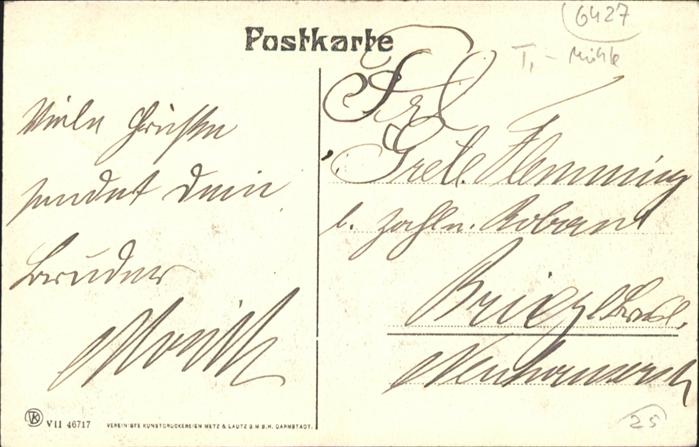 6427
Postkarte
T, - Mühle
Frl
Viele Grüße
sendet Dein
Bruder
Moritz
Grete Flemming
b. Robert
Brieg
VII 46717
VEREINIGTE KUNSTDRUCKEREIEN METZ & LAUTZ G.M.B.H. DARMSTADT.
25